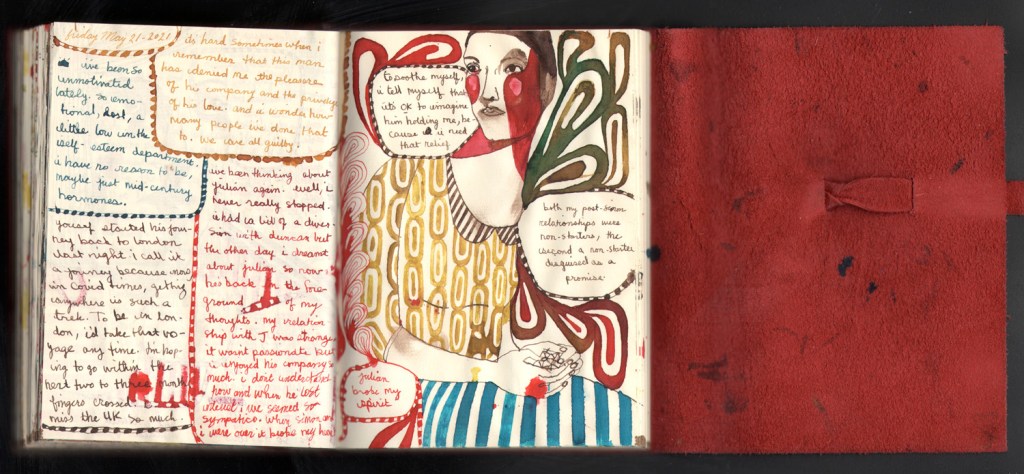 Friday May 21-2021
i've been so
unmotivated
lately. so emo-
tional, lost, a
little low in the
self-esteem department.
i have no reason to be,
maybe just mid-century
hormones.
it's hard sometimes when i
remember that this man
has denied me the pleasure
of his company and the privilege
of his love. and i wonder how
many people i've done that
to. we are all guilty.
yousef started his jour-
ney back to london
last night. i call it
a journey because now
in covid times, getting
anywhere is such a
trek. To be in lon-
don, i'd take that vo-
yage any time. i'm hop-
ing to go within the
next two to three months
fingers crossed. i
miss the UK so much.
i've been thinking about
julian again. well, i
never really stopped.
i had a bit of a diver-
sion with duncan but
the other day i dreamt
about julian so now
he's back in the fore-
ground of my
thoughts. my relation
ship with J was strange,
it wasn't passionate but
i enjoyed his company so
much. i don't understand
how and when he lost
interest; we seemed so
sympatico. when simon and
i were over it broke my heart
to soothe myself,
i tell myself that
it's OK to imagine
him holding me, be-
cause i need
that relief
both my post-simon
relationships were
non-starters, the
second a non starter
disguised as a
promise.
julian
broke my
spirit